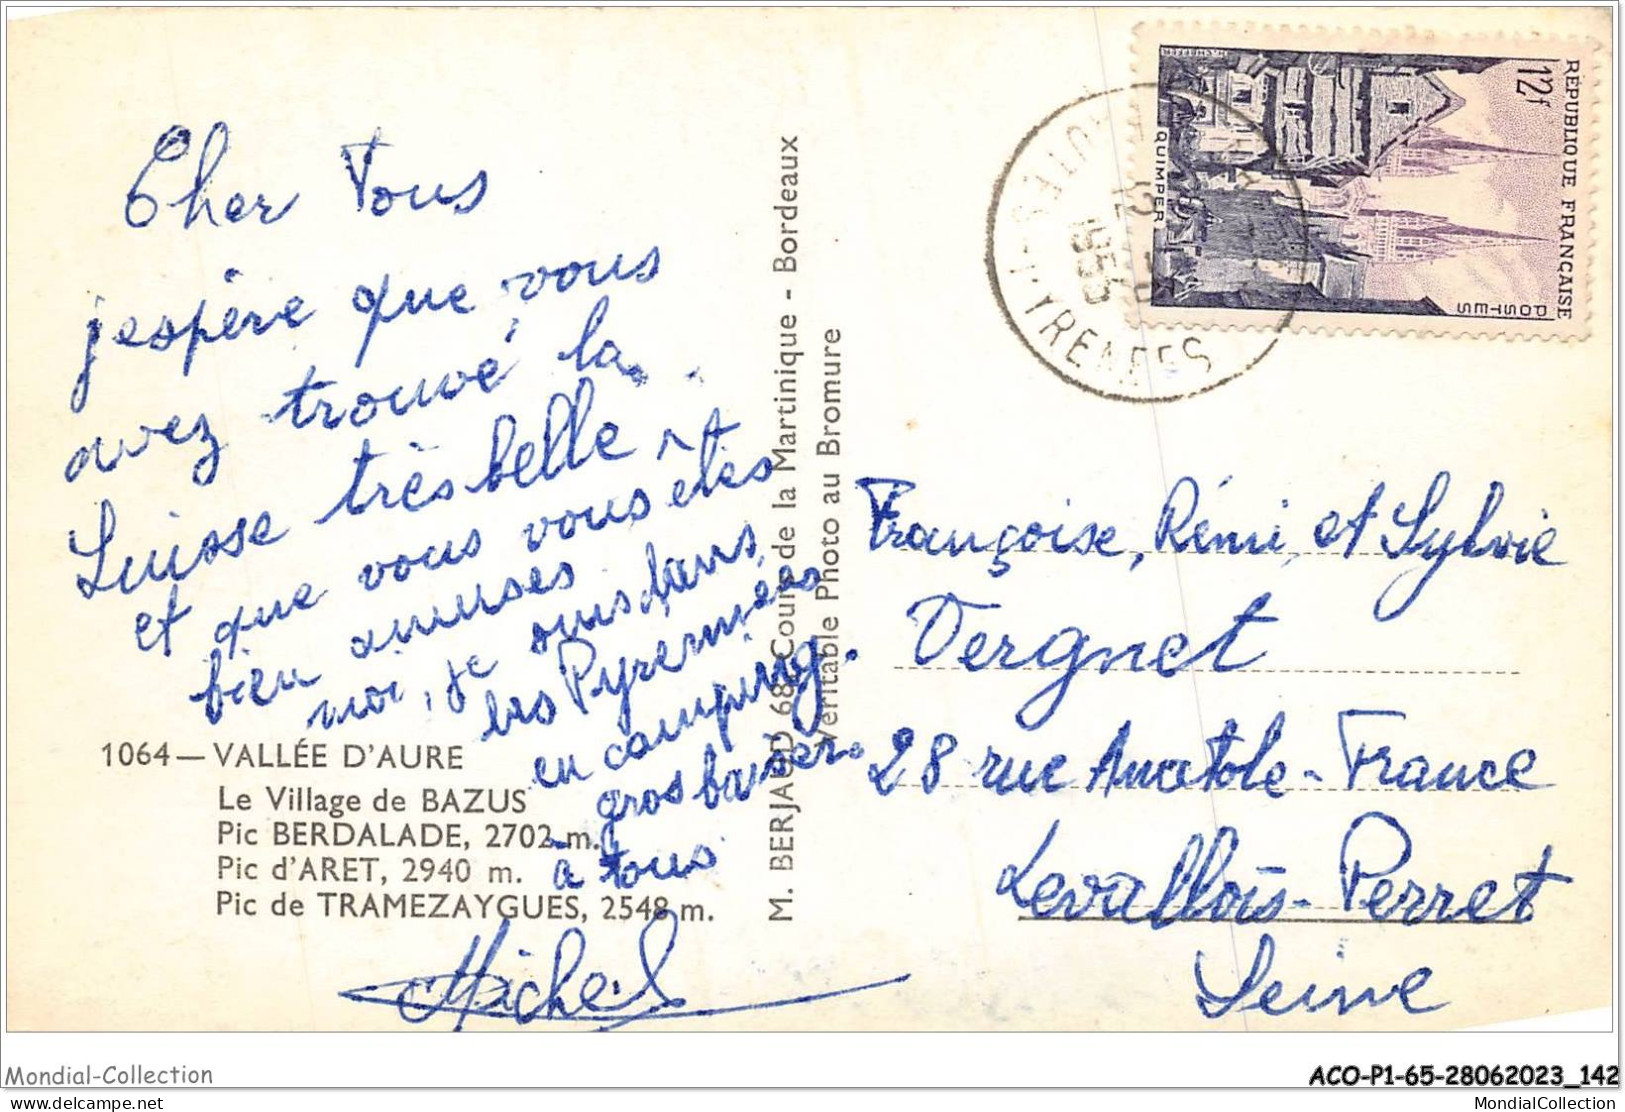 Cher Tous
j'espère que vous
avez trouvé la
Suisse très belle
et que vous vous etes
bien amusés
moi, je suis dans
les Pyrennées
en camping.
gros baiser
à tous
Michel
1064 — VALLÉE D'AURE
Le Village de BAZUS
Pic BERDALADE, 2702 m.
Pic d'ARET, 2940 m.
Pic de TRAMEZAYGUES, 2548 m.
M. BERJAUD 68, Cours de la Martinique - Bordeaux
Véritable Photo au Bromure
RÉPUBLIQUE FRANÇAISE
POSTES
12f
QUIMPER
HAUTES-PYRENEES
12
1955
Françoise, Rémi, et Sylvie
Vergnet
28 rue Anatole-France
Levallois-Perret
Seine
Mondial-Collection
ACO-P1-65-28062023_142
delcampe.net
MondialCollection